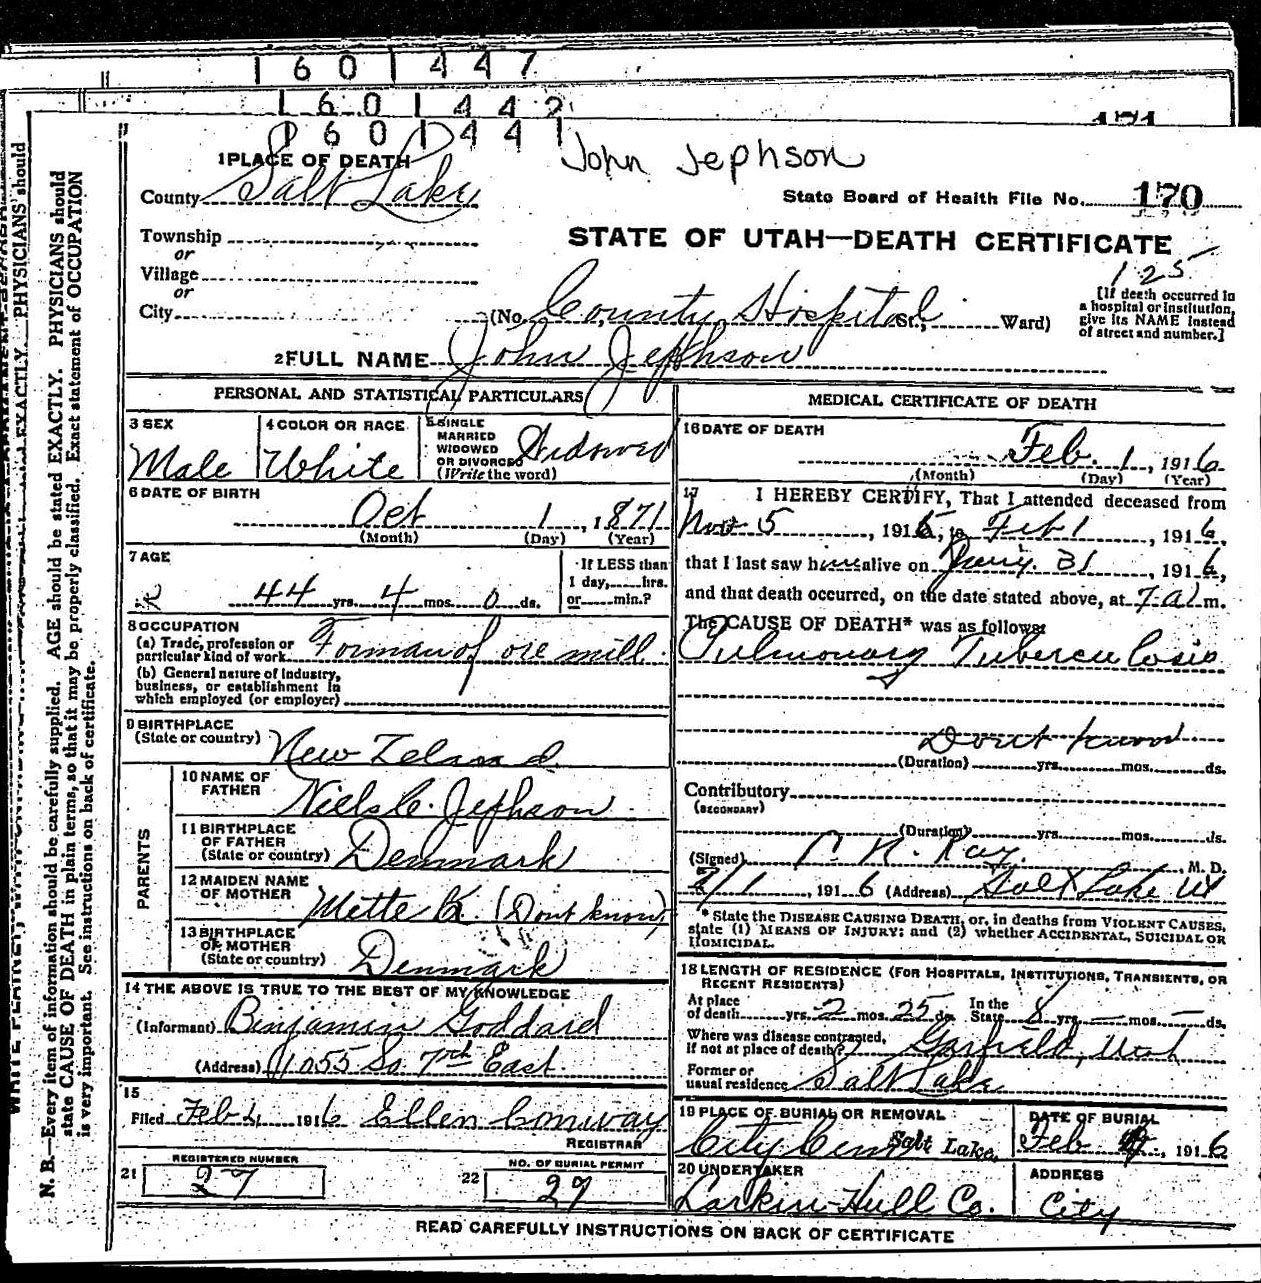 1601447
1601442
171
1601441
John Jephson
1 PLACE OF DEATH
County Salt Lake
State Board of Health File No. 170
Township
or
STATE OF UTAH—DEATH CERTIFICATE
Village
or
125
City (No. County Hospital St., Ward)
[If death occurred in
a hospital or institution,
give its NAME instead
of street and number.]
2 FULL NAME John Jephson
PERSONAL AND STATISTICAL PARTICULARS
3 SEX
Male
4 COLOR OR RACE
White
5 SINGLE
MARRIED
WIDOWED
OR DIVORCED
(Write the word)
Widower
6 DATE OF BIRTH
Oct 1, 1871
(Month) (Day) (Year)
7 AGE
44 yrs. 4 mos. 0 ds.
If LESS than
1 day, hrs.
or min.?
8 OCCUPATION
(a) Trade, profession or
particular kind of work Forman of ore mill
(b) General nature of industry,
business, or establishment in
which employed (or employer)
9 BIRTHPLACE
(State or country) New Zeland
PARENTS
10 NAME OF
FATHER Niels C. Jephson
11 BIRTHPLACE
OF FATHER
(State or country) Denmark
12 MAIDEN NAME
OF MOTHER Mette K. (Dont know)
13 BIRTHPLACE
OF MOTHER
(State or country) Denmark
14 THE ABOVE IS TRUE TO THE BEST OF MY KNOWLEDGE
(Informant) Benjamin Goddard
(Address) 1055 So. 7th East.
15
Filed Feb 4 1916 Ellen Conway
REGISTRAR
21 REGISTERED NUMBER
27
22 NO. OF BURIAL PERMIT
27
MEDICAL CERTIFICATE OF DEATH
16 DATE OF DEATH
Feb. 1, 1916
(Month) (Day) (Year)
17 I HEREBY CERTIFY, That I attended deceased from
Nov 5, 1915, to Feb 1, 1916,
that I last saw him alive on Jany. 31, 1916,
and that death occurred, on the date stated above, at 7 a m.
The CAUSE OF DEATH* was as follows:
Pulmonary Tuberculosis
Dont know
(Duration) yrs. mos. ds.
Contributory
(SECONDARY)
(Duration) yrs. mos. ds.
(Signed) N. Ray. M. D.
2/1, 1916 (Address) Salt Lake Ut
* State the DISEASE CAUSING DEATH, or, in deaths from VIOLENT CAUSES,
state (1) MEANS OF INJURY; and (2) whether ACCIDENTAL, SUICIDAL OR
HOMICIDAL.
18 LENGTH OF RESIDENCE (FOR HOSPITALS, INSTITUTIONS, TRANSIENTS, OR
RECENT RESIDENTS)
At place In the
of death yrs. 2 mos. 25 ds. State 8 yrs. — mos. — ds.
Where was disease contracted,
if not at place of death? Garfield, Utah
Former or
usual residence Salt Lake
19 PLACE OF BURIAL OR REMOVAL
City Cem Salt Lake.
DATE OF BURIAL
Feb 4, 1916
20 UNDERTAKER
Larkin-Hull Co.
ADDRESS
City
READ CAREFULLY INSTRUCTIONS ON BACK OF CERTIFICATE
N. B.—Every item of information should be carefully supplied. AGE should be stated EXACTLY. PHYSICIANS should
state CAUSE OF DEATH in plain terms, so that it may be properly classified. Exact statement of OCCUPATION
is very important. See instructions on back of certificate.